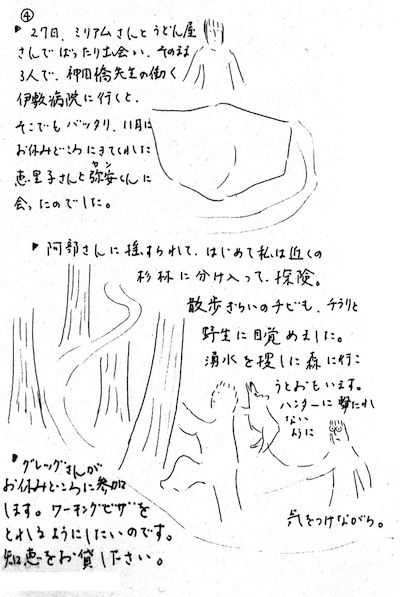 ④
27日、ミリアムさんとうどん屋
さんでばったり出会い、そのまま
3人で、神田橋先生の働く
伊敷病院に行くと、
そこでもバッタリ、11月に
お休みどころにきてくれした
恵里子さんと弥安くんに
カン
会ったのでした。
阿部さんに揺すられて、はじめて私は近くの
杉林に分け入って、探険。
散歩ぎらいのチビも、チラリと
野生に目覚めました。
湧水を捜しに森に行こ
うとおもいます。
ハンターに撃たれ
ない
ように
気をつけながら。
グレッグさんが
お休みどころに参加
します。ワーキングビザを
とれるようにしたいのです。
知恵をお貸し下さい。